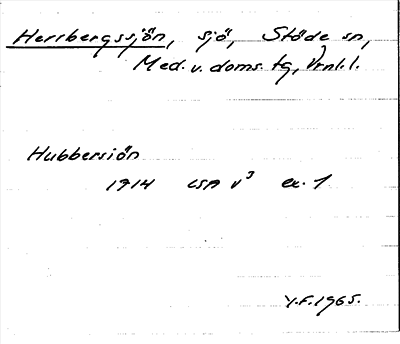 Herrbergssjön, sjö, Stöde sn,
Med. v. doms. tg, Vrnl. l.
Hubbersiön
1914 LSA V³ ex. 1
Y.F. 1965.